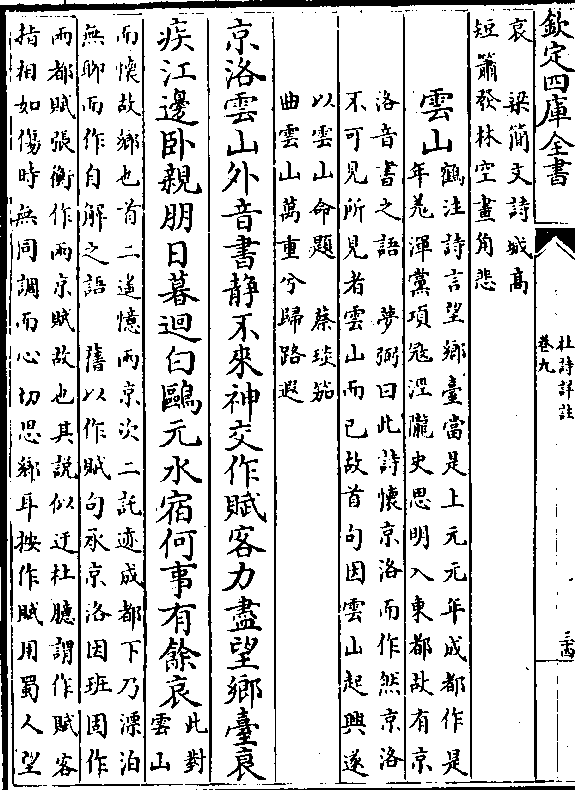 欽定四庫全書
杜詩詳註
卷九
哀　梁簡文詩城高
短簫發林空畫角悲
雲山
鶴注詩言望鄉臺當是上元元年成都作是
年羌渾黨項冦涇隴史思明入東都故有京
洛音書之語　夢弼曰此詩懷京洛而作然京洛
不可見所見者雲山而已故首句因雲山起興遂
以雲山命題　蔡琰笳
曲雲山萬重兮歸路遐
京洛雲山外音書静不來神交作賦客力盡望鄉臺衰
疾江邊卧親朋日暮迴白鷗元水宿何事有餘哀
此對
雲山
而懷故鄉也首二遥憶兩京次二託迹成都下乃漂泊
無聊而作自解之語　舊以作賦句承京洛因班固作
兩都賦張衡作兩京賦故也其説似迂杜臆謂作賦客
指相如傷時無同調而心切思鄉耳按作賦用蜀人望